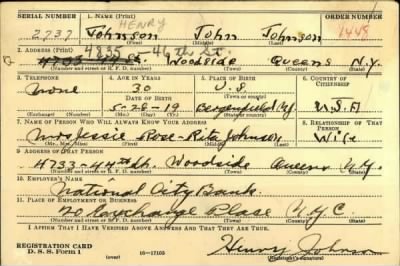 SERIAL NUMBER 1. NAME (Print) ORDER NUMBER
HENRY
2737 Johnson John Johnson 1448
(First) (Middle) (Last)
4835 - 46th St.
2. ADDRESS (Print)
4733 44th St. Woodside Queens N.Y.
(Number and street or R. F. D. number) (Town) (County) (State)
3. TELEPHONE 4. AGE IN YEARS 5. PLACE OF BIRTH 6. COUNTRY OF CITIZENSHIP
None 30 U.S.
DATE OF BIRTH
5-28-19 Bergenfield NJ U.S.A
(Exchange) (No.) (Mo.) (Day) (Yr.) (State or country)
7. NAME OF PERSON WHO WILL ALWAYS KNOW YOUR ADDRESS 8. RELATIONSHIP OF THAT PERSON
Mrs Jessie Rose-Rita Johnson Wife
(Mr., Mrs., Miss) (First) (Middle) (Last)
9. ADDRESS OF THAT PERSON
4733-44th St. Woodside Queens N.Y.
(Number and street or R. F. D. number) (Town) (County) (State)
10. EMPLOYER'S NAME
National City Bank
11. PLACE OF EMPLOYMENT OR BUSINESS
20 Exchange Place N.Y.C.
(Number and street or R. F. D. number) (Town) (County) (State)
I AFFIRM THAT I HAVE VERIFIED ABOVE ANSWERS AND THAT THEY ARE TRUE.
REGISTRATION CARD
D. S. S. Form 1 (over) 16-17105 Henry Johnson
(Registrant's signature)